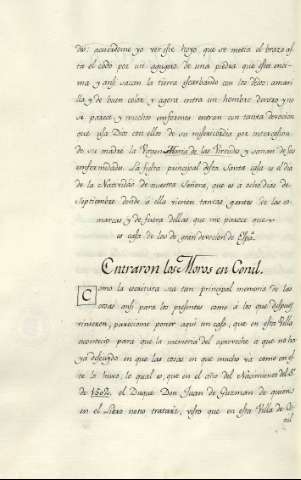 dar: acuerdome yo ver este hoyo, que se metia el brazo as
ta el codo por un agugero de una piedra que esta enci-
ma y ansi sacan la tierra escarbando con los dedos amari
lla y de buen color y agora entra un hombre derecho y no
si pozeca y muchos enfermos entran con tanta devocion
que usa Dios con ellos de su misericordia por intercesion
de su madre la Virgen Maria de las Virtudes y sanan de sus
enfermedades. La fiesta principal desta Santa casa es el dia
de la Natividad de nuestra Señora, que es a ocho dias de
Septiembre donde a ella vienen tantas gentes de las co-
marcas y de fuera dellas que me parece que y
es casa de las de gran devocion de Espª.
Entraron los Moros en Conil.
Como la escritura sea tan principal memoria de las
cosas ansi para los presentes como a los que despues
vinieren, pareciome poner aqui un caso, que en esta Villa
acontecio para que la memoria del aproveche a que no ha
ya descuido en que las cosas en que mucho va como en es
te lo huvo, lo qual es, que en el año del Nacimiento del Sr.
de 1502. el Duque Don Juan de Guzman de quien
en el Libro nono tratare, visto que en esta Villa de Co
nil